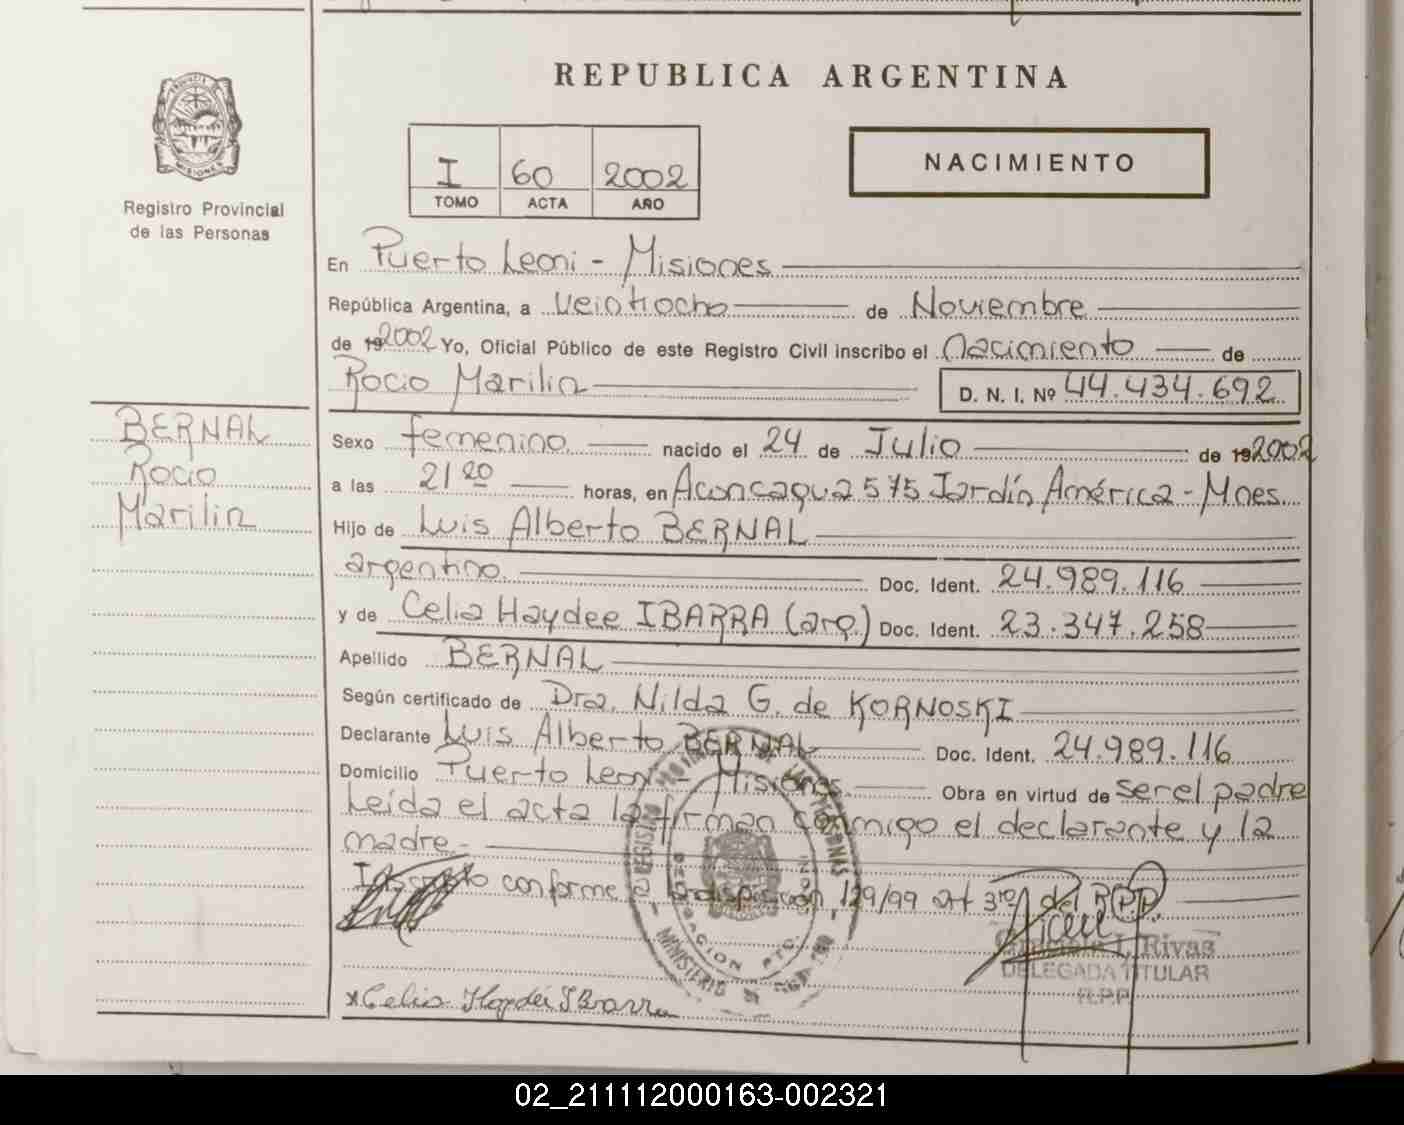 REPUBLICA ARGENTINA
I 60 2002
TOMO ACTA AÑO
NACIMIENTO
Registro Provincial
de las Personas
En Puerto Leoni - Misiones
República Argentina, a veintiocho de Noviembre
de 192002 Yo, Oficial Público de este Registro Civil inscribo el nacimiento de
Rocio Marilin D. N. I. Nº 44.434.692
BERNAL
Rocio
Marilin
Sexo femenino nacido el 24 de Julio de 192002
a las 21 20 horas, en Aconcagua 575 Jardín América - Mnes.
Hijo de Luis Alberto BERNAL
argentino. Doc. Ident. 24.989.116
y de Celia Haydee IBARRA (arg.) Doc. Ident. 23.347.258
Apellido BERNAL
Según certificado de Dra. Nilda G. de KORNOSKI
Declarante Luis Alberto BERNAL Doc. Ident. 24.989.116
Domicilio Puerto Leoni - Misiones Obra en virtud de ser el padre
Leída el acta la firman conmigo el declarante y la
madre.-
Inscripto conforme a la disposición 129/99 art 3ro del RPP.
Graciela I. Rivas
DELEGADA TITULAR
R.P.P.
x Celia Haydeé Ibarra
02_211112000163-002321